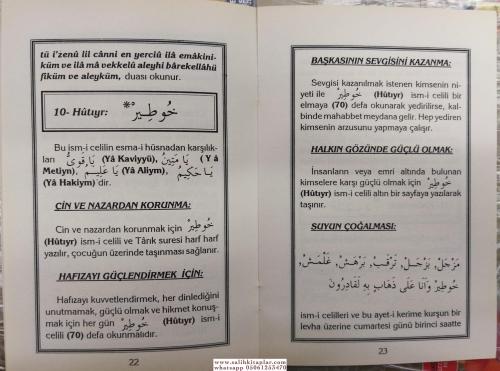 tü i'zenü lil cânni en yerciû ilâ emâkini-
küm ve ilâ mâ vekkelû aleyhi bârekellâhü
fîküm ve aleyküm, duası okunur.
10- Hûtıyr: خُوطِيرْ
Bu ism-i celilin esma-i hüsnadan karşılık-
ları يَا قَوِىُّ (Yâ Kaviyyü), يَا مَتِينُ (Yâ
Metiyn), يَا عَلِيمُ (Yâ Aliym), يَا حَكِيمُ
(Yâ Hakiym) dir.
ÇİN VE NAZARDAN KORUNMA:
Cin ve nazardan korunmak için خُوطِيرْ
(Hûtıyr) ism-i celili ve Târık suresi harf harf
yazılır, çocuğun üzerinde taşınması sağlanır.
HAFIZAYI GÜÇLENDİRMEK İÇİN:
Hafızayı kuvvetlendirmek, her dinlediğini
unutmamak, güçlü olmak ve hikmet konuş-
mak için her gün خُوطِيرْ (Hûtıyr) ism-i
celili (70) defa okunmalıdır.
22
BAŞKASININ SEVGİSİNİ KAZANMA:
Sevgisi kazanılmak istenen kimsenin ni-
yeti ile خُوطِيرْ (Hûtıyr) ism-i celili bir
elmaya (70) defa okunarak yedirilirse, kal-
binde mahabbet meydana gelir. Hep yediren
kimsenin arzusunu yapmaya çalışır.
HALKIN GÖZÜNDE GÜÇLÜ OLMAK:
İnsanların veya emri altında bulunan
kimselere karşı güçlü olmak için خُوطِيرْ
(Hûtıyr) ism-i celili altın bir sayfaya yazılarak
taşınır.
SUYUN ÇOĞALMASI:
مَزْجَلْ، بَزْجَلْ، تَرْقَبْ، بَرْهَشْ، غَلْمَشْ،
خُوطِيرْ وَاَنَا عَلَى ذَهَابٍ بِهِ لَقَادِرُونَ
ism-i celilleri ve bu ayet-i kerime kurşun bir
levha üzerine cumartesi günü birinci saatte
23
www.salihkitaplar.com
whatsapp 05061253470